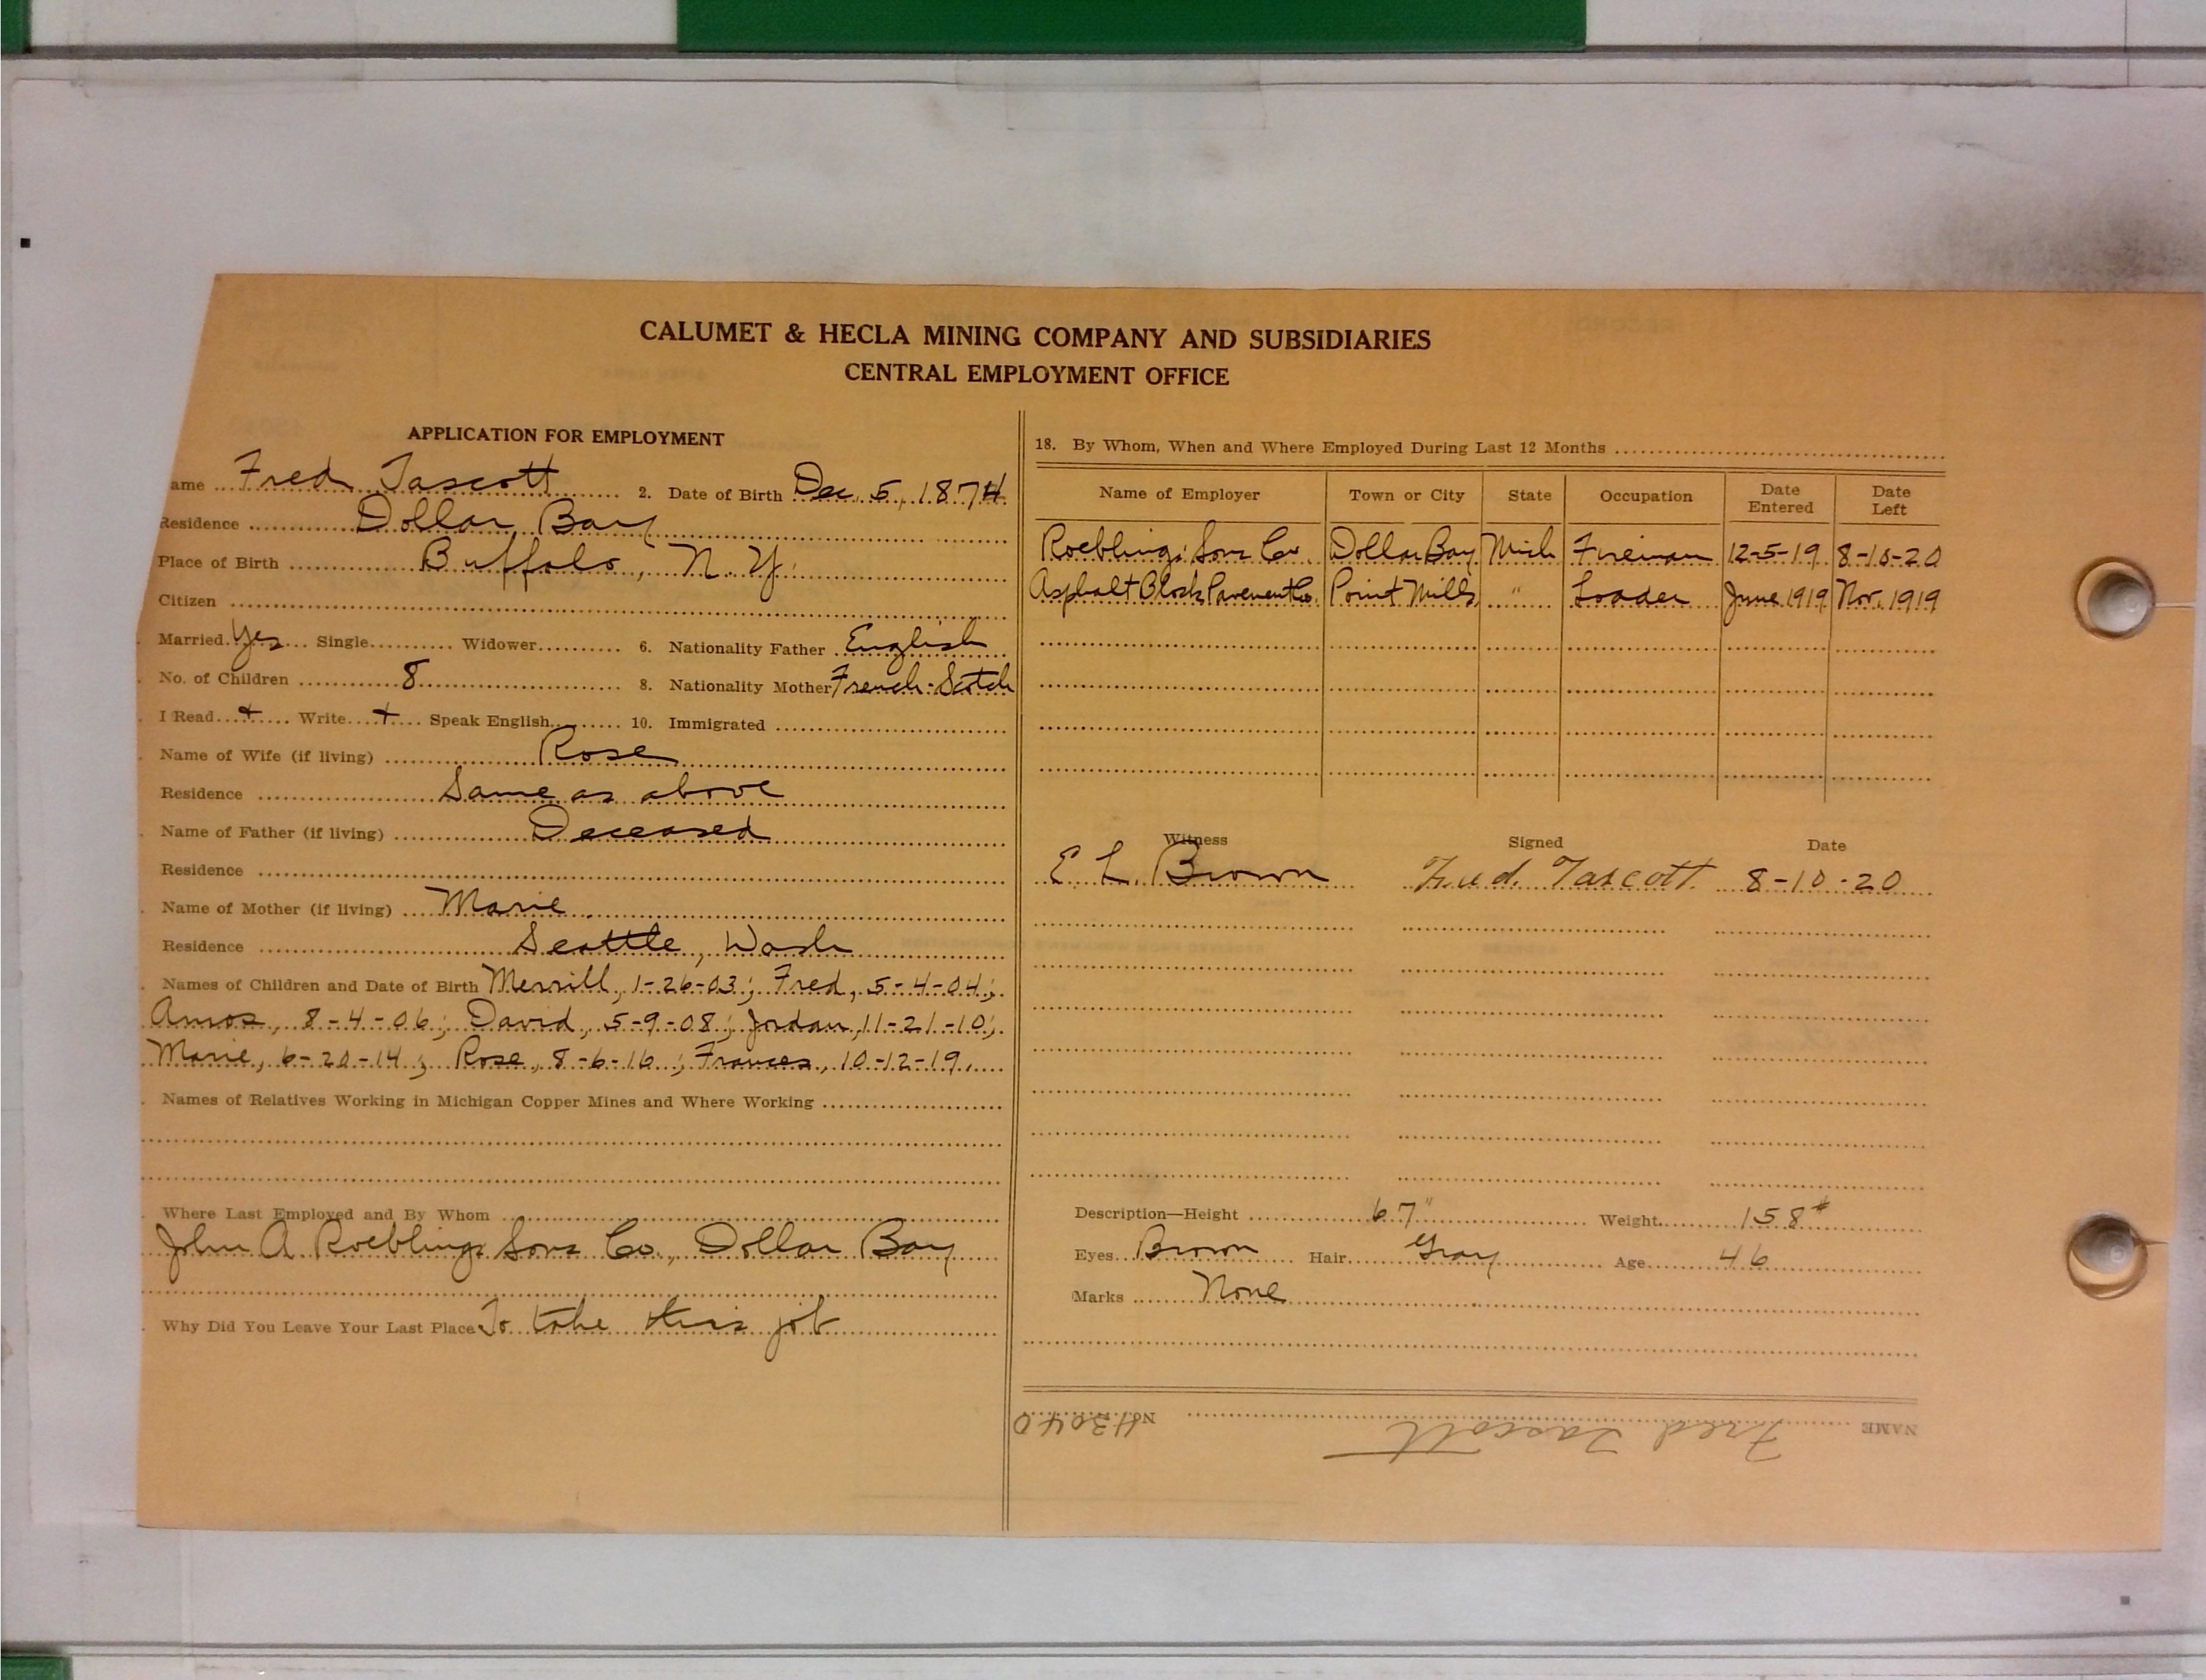 CALUMET & HECLA MINING COMPANY AND SUBSIDIARIES
CENTRAL EMPLOYMENT OFFICE
APPLICATION FOR EMPLOYMENT
ame Fred Tascott 2. Date of Birth Dec. 5, 1874
Residence Dollar Bay
Place of Birth Buffalo, N.Y.
Citizen
Married Yes Single Widower 6. Nationality Father English
No. of Children 8 8. Nationality Mother French-Scotch
I Read + Write + Speak English 10. Immigrated
Name of Wife (if living) Rose
Residence Same as above
Name of Father (if living) Deceased
Residence
Name of Mother (if living) Marie
Residence Seattle, Wash
Names of Children and Date of Birth Merrill, 1-26-03; Fred, 5-4-04;
Amos, 8-4-06; David, 5-9-08; Jordan, 11-21-10;
Marie, 6-20-14; Rose, 8-6-16; Frances, 10-12-19.
Names of Relatives Working in Michigan Copper Mines and Where Working
Where Last Employed and By Whom
John A Roebling Sons Co., Dollar Bay
Why Did You Leave Your Last Place To take this job
18. By Whom, When and Where Employed During Last 12 Months
Name of Employer Town or City State Occupation Date Entered Date Left
Roebling Sons Co. Dollar Bay Mich Fireman 12-5-19 8-10-20
Asphalt Block Pavement Co. Point Mills " Loader June 1919 Nov. 1919
Witness Signed Date
E. L. Brown Fred. Tascott 8-10-20
Description—Height 67" Weight 158#
Eyes Brown Hair Gray Age 46
Marks None
NAME Fred Tascott No. H3040